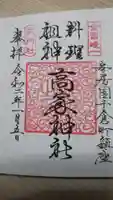 安房国千倉町鎮座
料理
祖神
高家神社
奉拝 令和二年一月五日